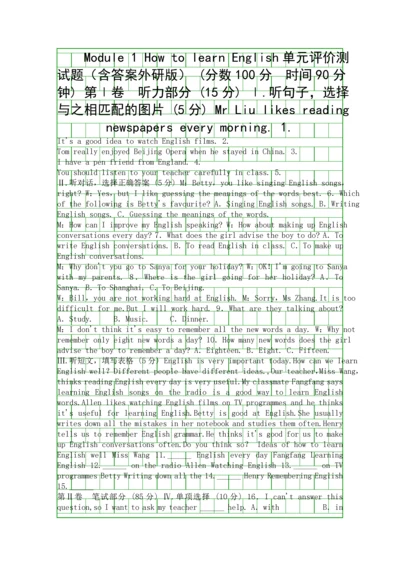 Module 1 How to learn English单元评价测
试题(含答案外研版) (分数100分 时间90分
钟) 第Ⅰ卷 听力部分 (15分) Ⅰ.听句子，选择
与之相匹配的图片(5分) Mr Liu likes reading
newspapers every morning. 1.
It's a good idea to watch English films. 2.
Tom really enjoyed Beijing Opera when he stayed in China. 3.
I have a pen friend from England. 4.
You should listen to your teacher carefully in class. 5.
Ⅱ.听对话，选择正确答案 (5分) M: Betty, you like singing English songs,
right? W: Yes, but I like guessing the meanings of the words best. 6. Which
of the following is Betty's favourite? A. Singing English songs. B. Writing
English songs. C. Guessing the meanings of the words.
M: How can I improve my English speaking? W: How about making up English
conversations every day? 7. What does the girl advise the boy to do? A. To
write English conversations. B. To read English in class. C. To make up
English conversations.
M: Why don't you go to Sanya for your holiday? W: OK! I'm going to Sanya
with my parents. 8. Where is the girl going for her holiday? A. To
Sanya. B. To Shanghai. C. To Beijing.
W: Bill, you are not working hard at English. M: Sorry, Ms Zhang.It is too
difficult for me.But I will work hard. 9. What are they talking about?
A. Study. B. Music. C. Dinner.
M: I don't think it's easy to remember all the new words a day. W: Why not
remember only eight new words a day? 10. How many new words does the girl
advise the boy to remember a day? A. Eighteen. B. Eight. C. Fifteen.
Ⅲ.听短文，填写表格 (5分) English is very important today.How can we learn
English well? Different people have different ideas. Our teacher,Miss Wang,
thinks reading English every day is very useful.My classmate Fangfang says
learning English songs on the radio is a good way to learn English
words.Allen likes watching English films on TV programmes and he thinks
it's useful for learning English.Betty is good at English.She usually
writes down all the mistakes in her notebook and studies them often.Henry
tells us to remember English grammar.He thinks it's good for us to make
up English conversations often.Do you think so? Ideas of how to learn
English well Miss Wang 11.______ English every day Fangfang Learning
English 12.______ on the radio Allen Watching English 13.______ on TV
programmes Betty Writing down all the 14.______ Henry Remembering English
15.______
第Ⅱ卷 笔试部分 (85分) Ⅳ.单项选择 (10分) 16. I can't answer this
question,so I want to ask my teacher ______ help. A. with B. in